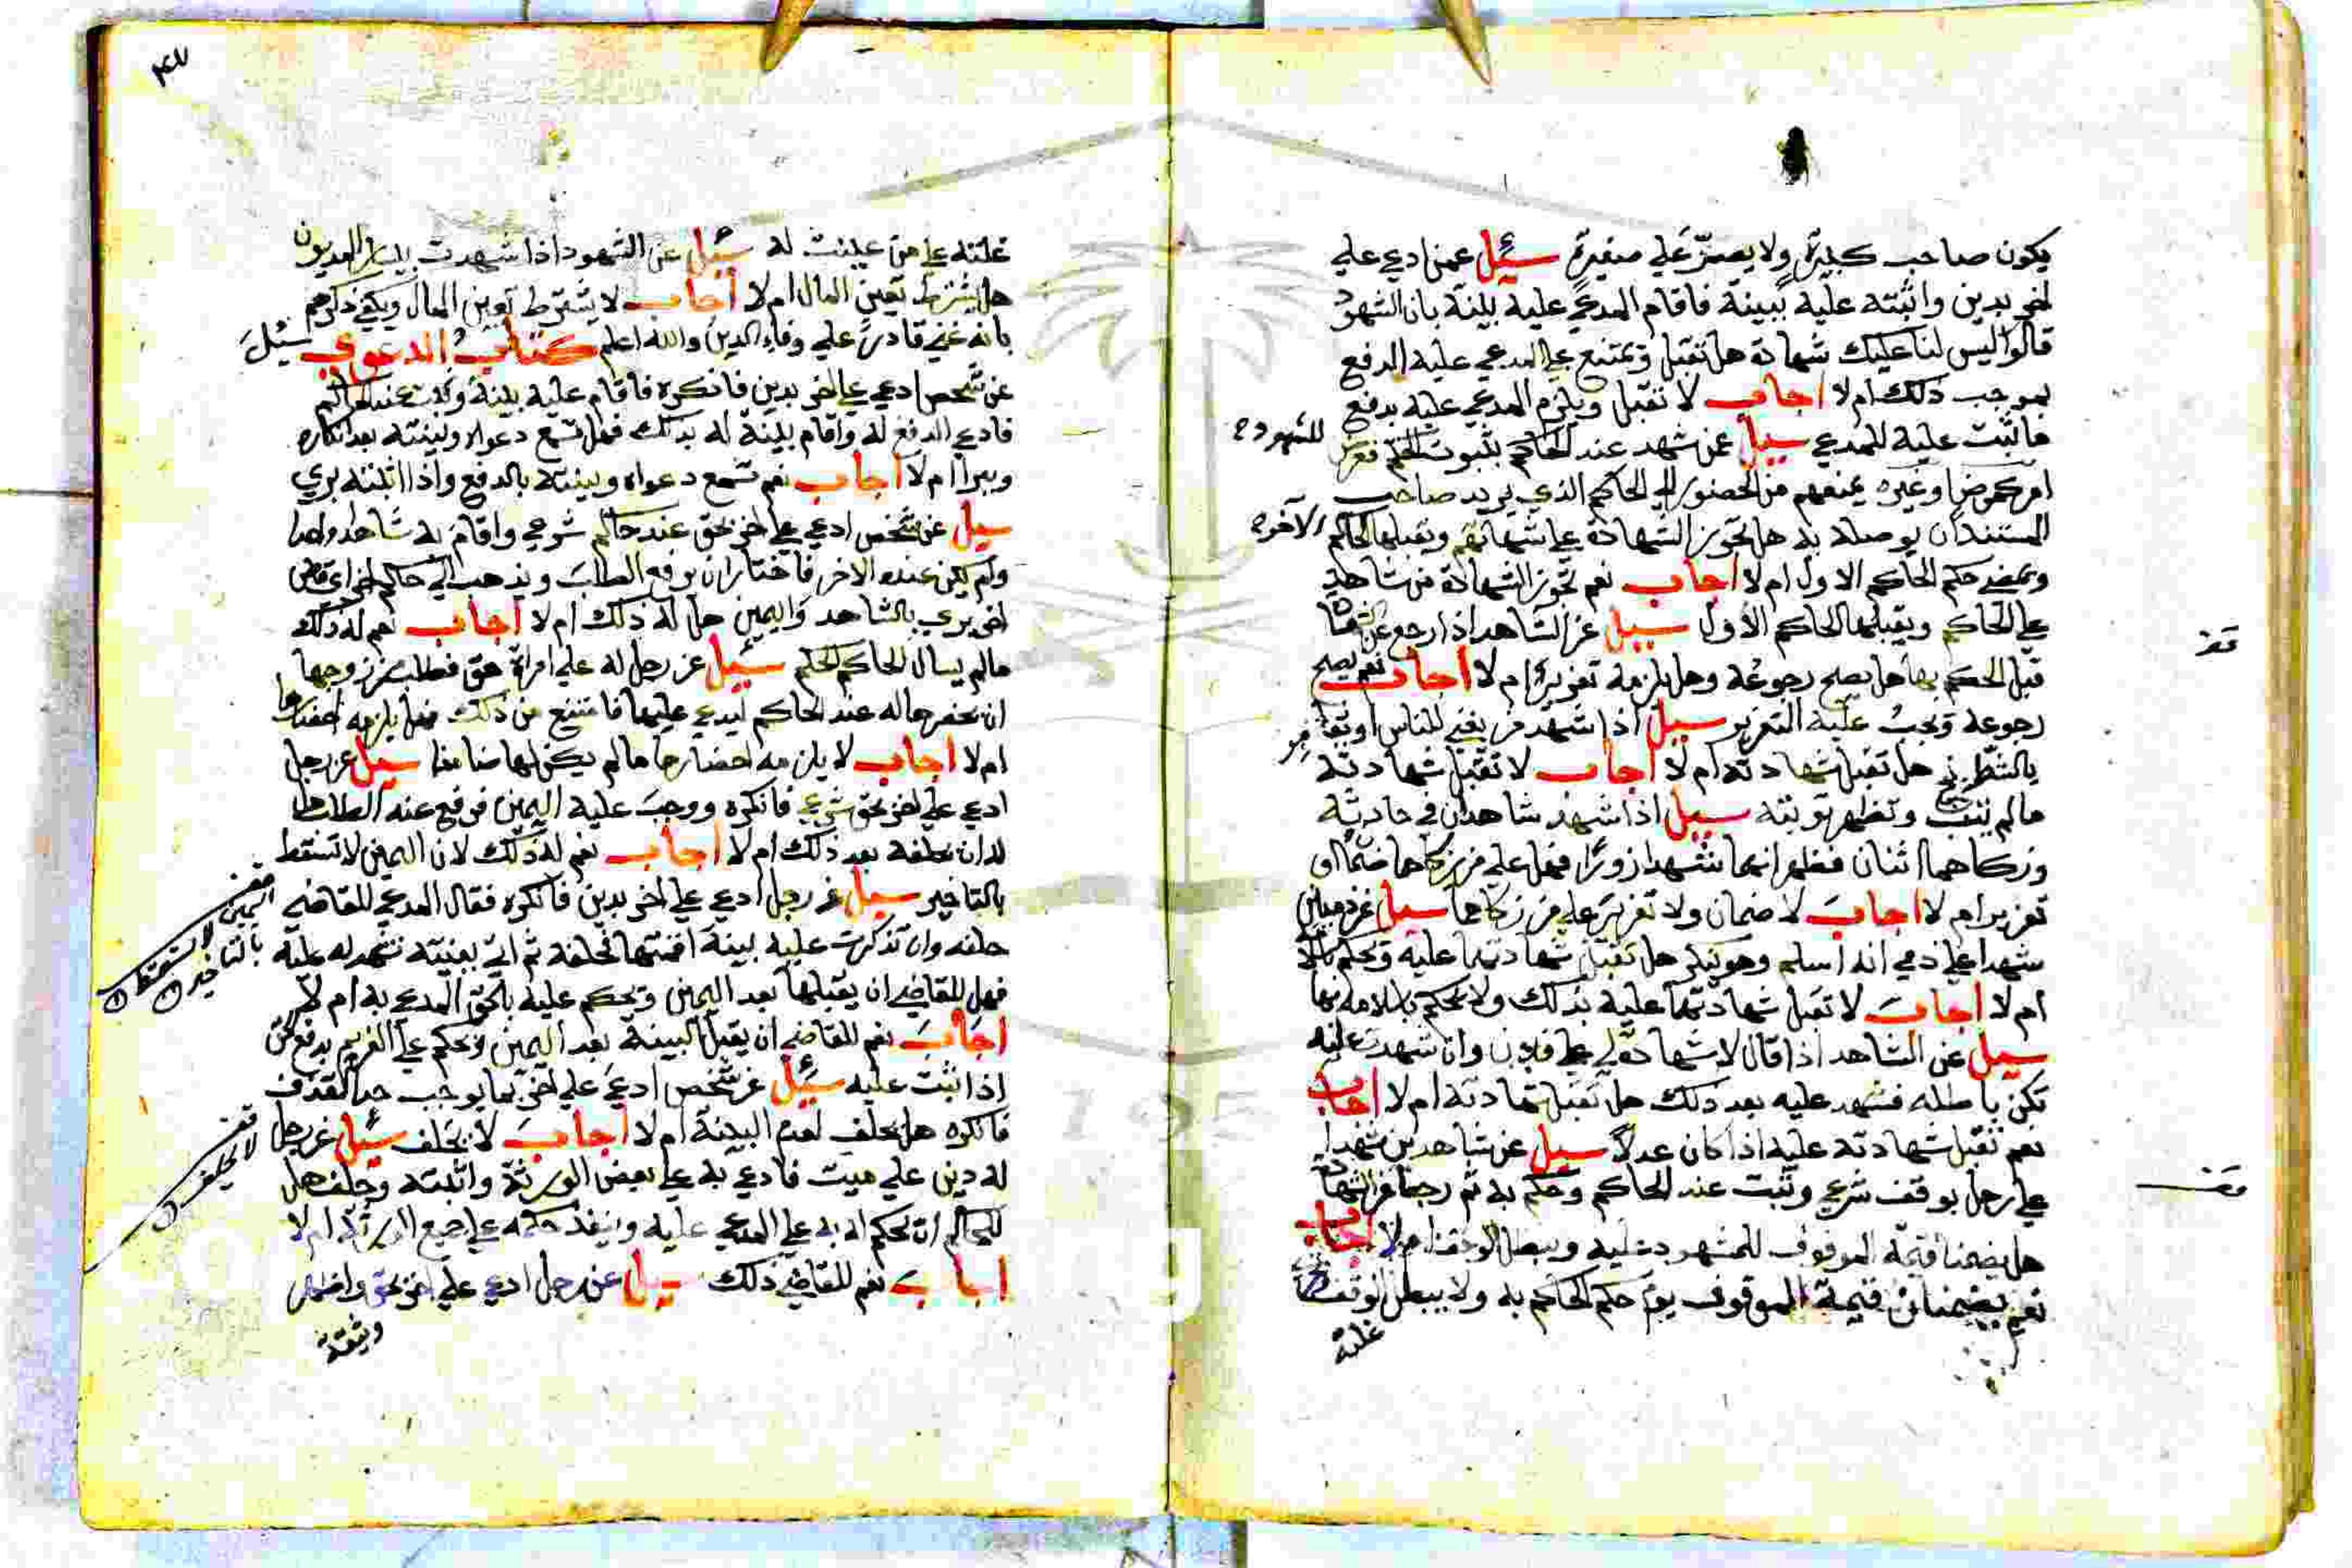 يكون صاحب كبيرة ولا يصرّ علي صغيرة سئيل عمن ادعي علي
اخر بدين واثبته عليه ببينة فاقام المدعي عليه بينة بان الشهود
قالوا ليس لنا عليك شهادة هل تقبل وتمتنع علي المدعي عليه الدفع
بموجب ذلك ام لا اجاب لا تقبل ويلزم المدعي عليه بدفع
ما ثبت عليه للمدعي سيل عن شهد عند الحاكم بثبوت الحكم فعرض للشهود
امر كمرض او غيره يمنعهم من الحضور الي الحاكم الذي يريد صاحب
المستند ان يوصله به هل تجوز الشهادة علي شهادتهم ويقبلها الحاكم الاخر
ويمضي حكم الحاكم الاول ام لا اجاب نعم تجوز الشهادة من شاهدي
علي الحاكم ويقبلها الحاكم الاول سيل عن الشاهد اذا رجع عن الشهادة
قبل الحكم بها هل يصح رجوعه وهل يلزمه تعزير ام لا اجاب نعم يصح
رجوعه ويجب عليه التعزير سيل اذا شهد من يغني للناس او يقامر
بالشطرنج هل تقبل شهادته ام لا اجاب لا تقبل شهادته
ما لم يتب وتظهر توبته سيل اذا شهد شاهدان في حادثة
وزكاهما اثنان فظهر انهما شهدا زورًا فهل علي من زكاهما ضمان او
تعزير ام لا اجاب لا ضمان ولا تعزير علي من زكاهما سيل عن ذميين
شهدا علي ذمي انه اسلم وهو ينكر هل تقبل شهادتهما عليه ويحكم
ام لا اجاب لا تقبل شهادتهما عليه بذلك ولا يحكم باسلامه بها
سيل عن الشاهد اذا قال لا شهادة لي علي فلان وان شهدت عليه
تكن باطله فشهد عليه بعد ذلك هل تقبل شهادته ام لا اجاب
نعم تقبل شهادته عليه اذا كان عدلاً سيل عن شاهدين شهدا
علي رجل بوقف شرعي وثبت عند الحاكم وحكم به ثم رجعا عن الشهادة
هل يضمنا قيمة الموقوف للمشهود عليه ويبطل الوقف ام لا اجاب
نعم يضمنان قيمة الموقوف يوم حكم الحاكم به ولا يبطل الوقف
غلته
غلته علي من عينت له سئيل عن الشهود اذا شهدت بيسار المديون
هل يشترط تعيين المال ام لا اجاب لا يشترط تعيين المال ويكفي ذكرهم
بانه غني قادر علي وفاء الدين والله اعلم كتاب الدعوي سئل
عن شخص ادعي علي اخر بدين فانكره فاقام عليه بينة وثبت عند الحاكم
فادعي الدفع له واقام بينة له بذلك فهل تسمع دعواه وبينته بعد انكاره
ويبرا ام لا اجاب نعم تسمع دعواه وبينته بالدفع واذا اثبته بري
سيل عن شخص ادعي علي اخر بحق عند حاكم شرعي واقام به شاهدا واحدا
ولم يكن عنده الاخر فاختار ان يرفع الطلب ويذهب الي حاكم اخر اي قاض
اخر يري بالشاهد واليمين هل له ذلك ام لا اجاب نعم له ذلك
ما لم يسال الحاكم الحكم سئيل عن رجل له علي امراة حق فطلب من زوجها
ان يحضرها له عند الحاكم ليدعي عليها فامتنع من ذلك فهل يلزمه احضارها
ام لا اجاب لا يلزمه احضارها ما لم يكن لها ضامنا سيل عن رجل
ادعي علي اخر بحق شرعي فانكره ووجب عليه اليمين فرفع عنه الطلب هل
له ان يحلفه بعد ذلك ام لا اجاب نعم له ذلك لان اليمين لا تسقط
بالتاخير سيل عن رجل ادعي علي اخر بدين فانكره فقال المدعي للقاضي
حلفه وان تذكرت عليه بينة اقمتها فحلفه ثم اتي ببينته تشهد له عليه
فهل للقاضي ان يقبلها بعد اليمين ويحكم عليه بالحق المدعي به ام لا
اجاب نعم للقاضي ان يقبل البينة بعد اليمين ويحكم علي الغريم بدفع الحق
اذا ثبت عليه سئيل عن شخص ادعي علي اخر بما يوجب حد القذف
فانكره هل يحلف لعدم البينة ام لا اجاب لا يحلف سئيل عن رجل
له دين علي ميت فادعي به علي بعض الورثة واثبته وحلف هل
للحاكم ان يحكم له به علي المدعي عليه وينفذ حكمه علي جميع الورثة ام لا
اجاب نعم للقاضي ذلك سيل عن رجل ادعي علي اخر بحق واظهر
وثيقة
اليمين لا تسقط
بالتاخير
لا يحلف